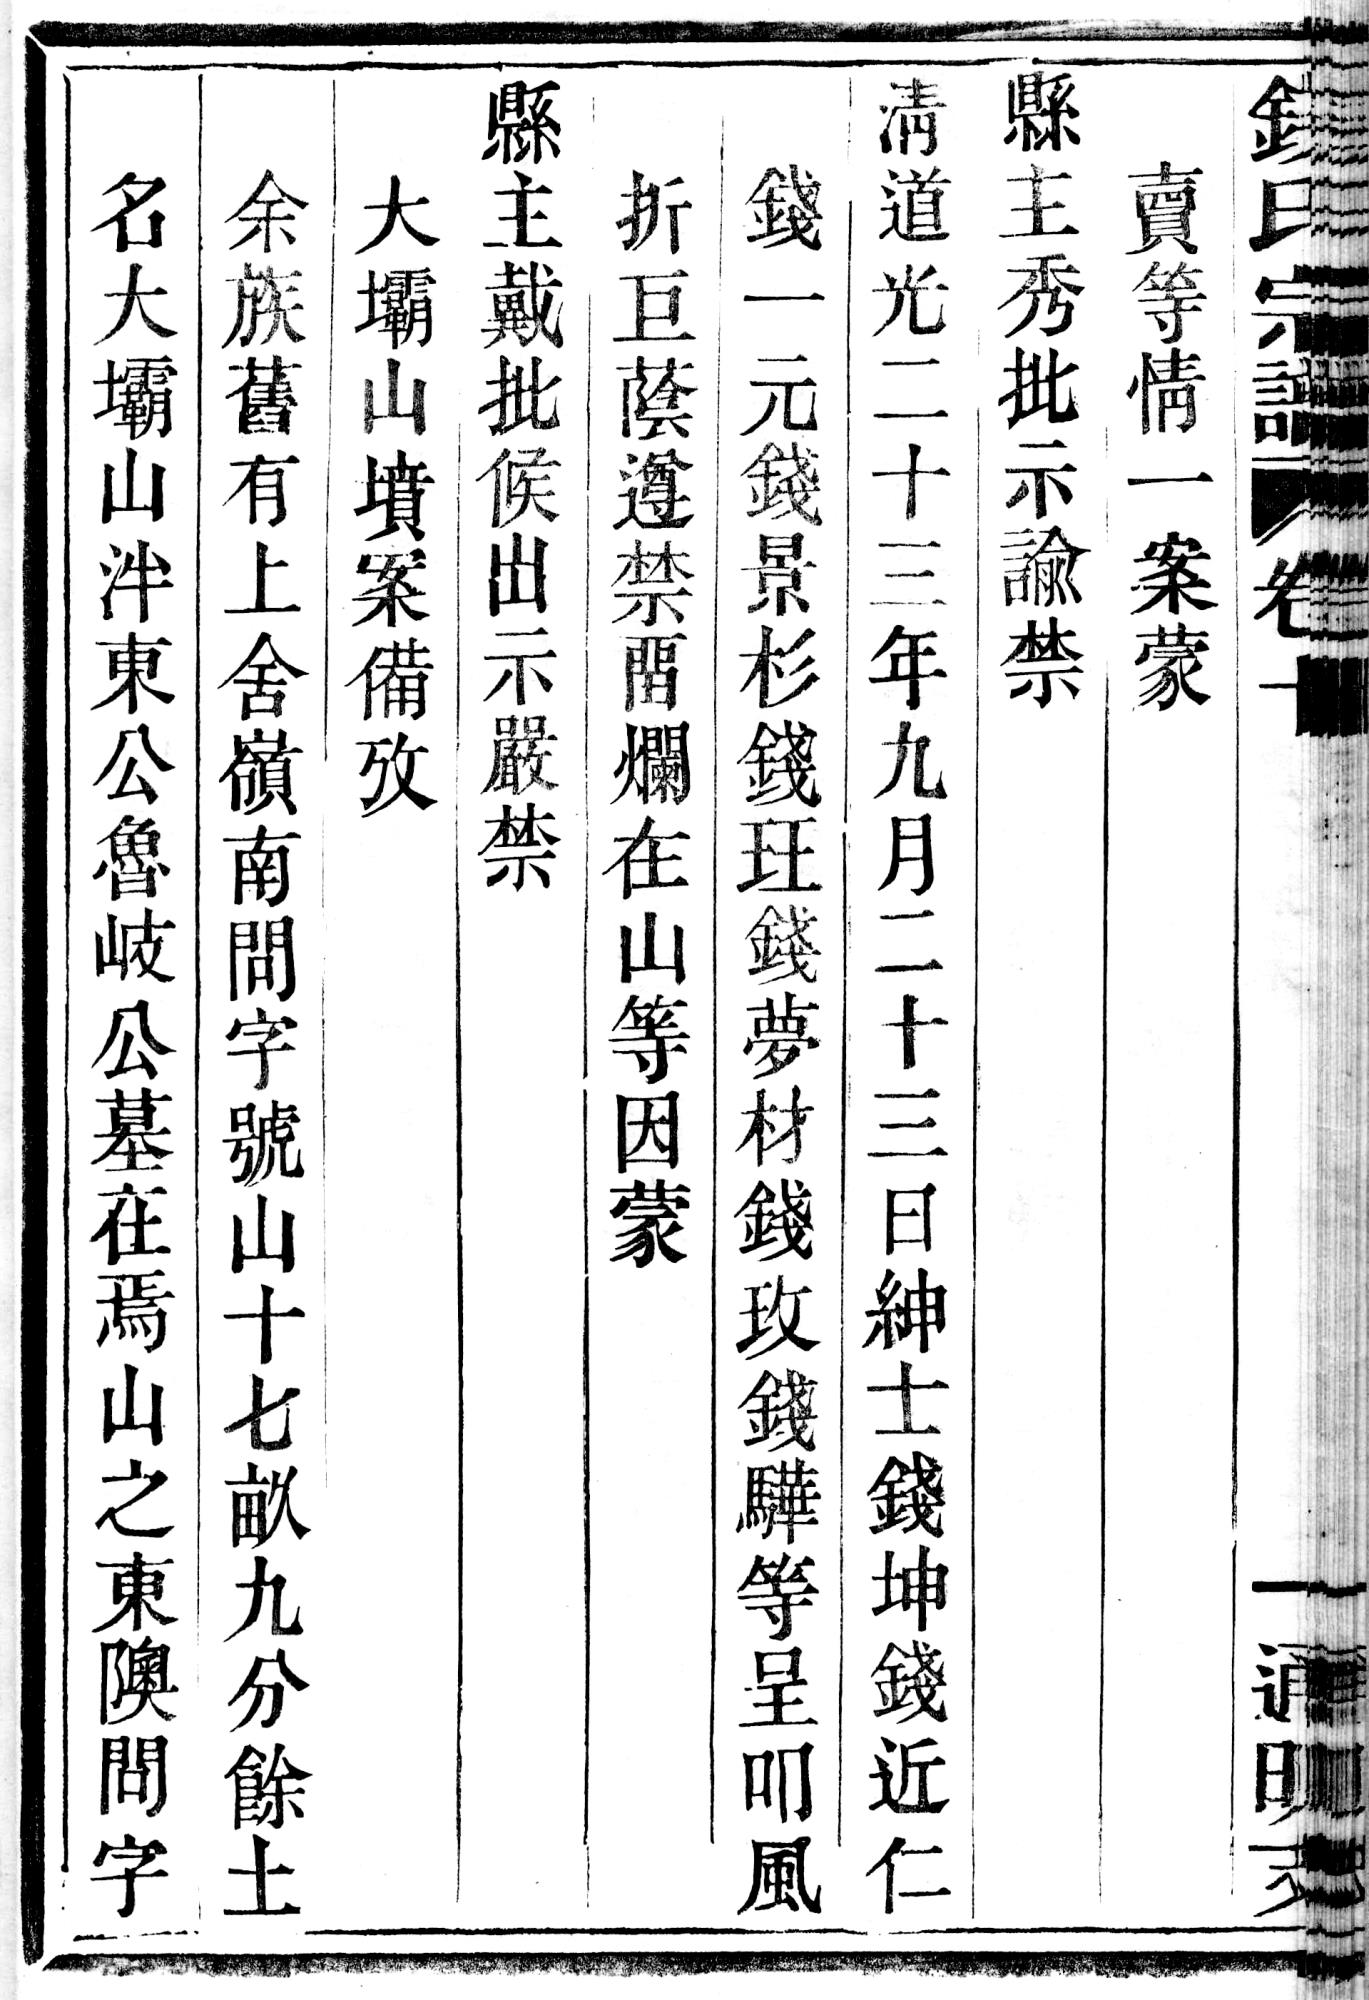 錢氏宗譜 卷十 一 通明
賣等情一案蒙
縣主秀批示諭禁
清道光二十三年九月二十三日紳士錢坤錢近仁
錢一元錢景杉錢玨錢夢材錢玫錢驊等呈叩風
折巨蔭遵禁畱爛在山等因蒙
縣主戴批候出示嚴禁
大壩山墳案備攷
余族舊有上舍嶺南問字號山十七畝九分餘土
名大壩山泮東公魯岐公墓在焉山之東隩問字